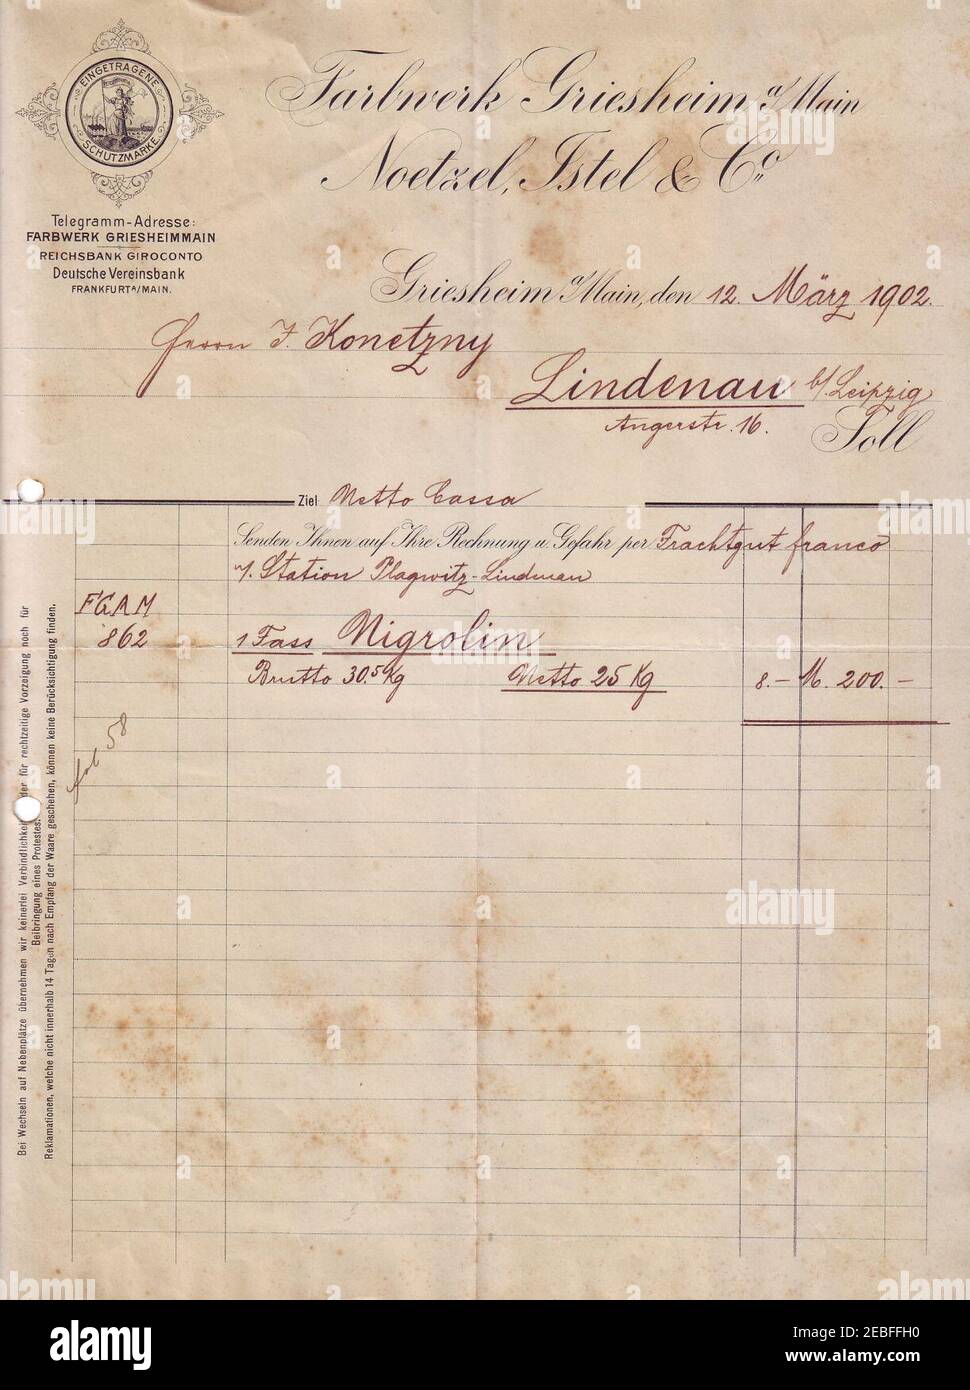 EINGETRAGENE
SCHUTZMARKE.
Farbwerk Griesheim a/Main
Noetzel, Istel & Co.
Telegramm-Adresse:
FARBWERK GRIESHEIMMAIN
REICHSBANK GIROCONTO
Deutsche Vereinsbank
FRANKFURT A/MAIN.
Griesheim a/Main, den 12. März 1902.
Herrn J. Konetzny
Lindenau b/Leipzig
Angerstr. 16.
Soll
Ziel Netto Cassa
Senden Ihnen auf Ihre Rechnung u. Gefahr per Frachtgut franco
Station Plagwitz-Lindenau
FGAM
862 1 Fass Nigrolin
Brutto 30.5 Kg Netto 25 Kg 8.- M. 200.-
fol 58
Bei Wechseln auf Nebenplätze übernehmen wir keinerlei Verbindlichkeit der für rechtzeitige Vorzeigung noch für
Beibringung eines Protestes.
Reklamationen, welche nicht innerhalb 14 Tagen nach Empfang der Waare geschehen, können keine Berücksichtigung finden.
alamy
alamy
Image ID: 2EBFFH0
www.alamy.com